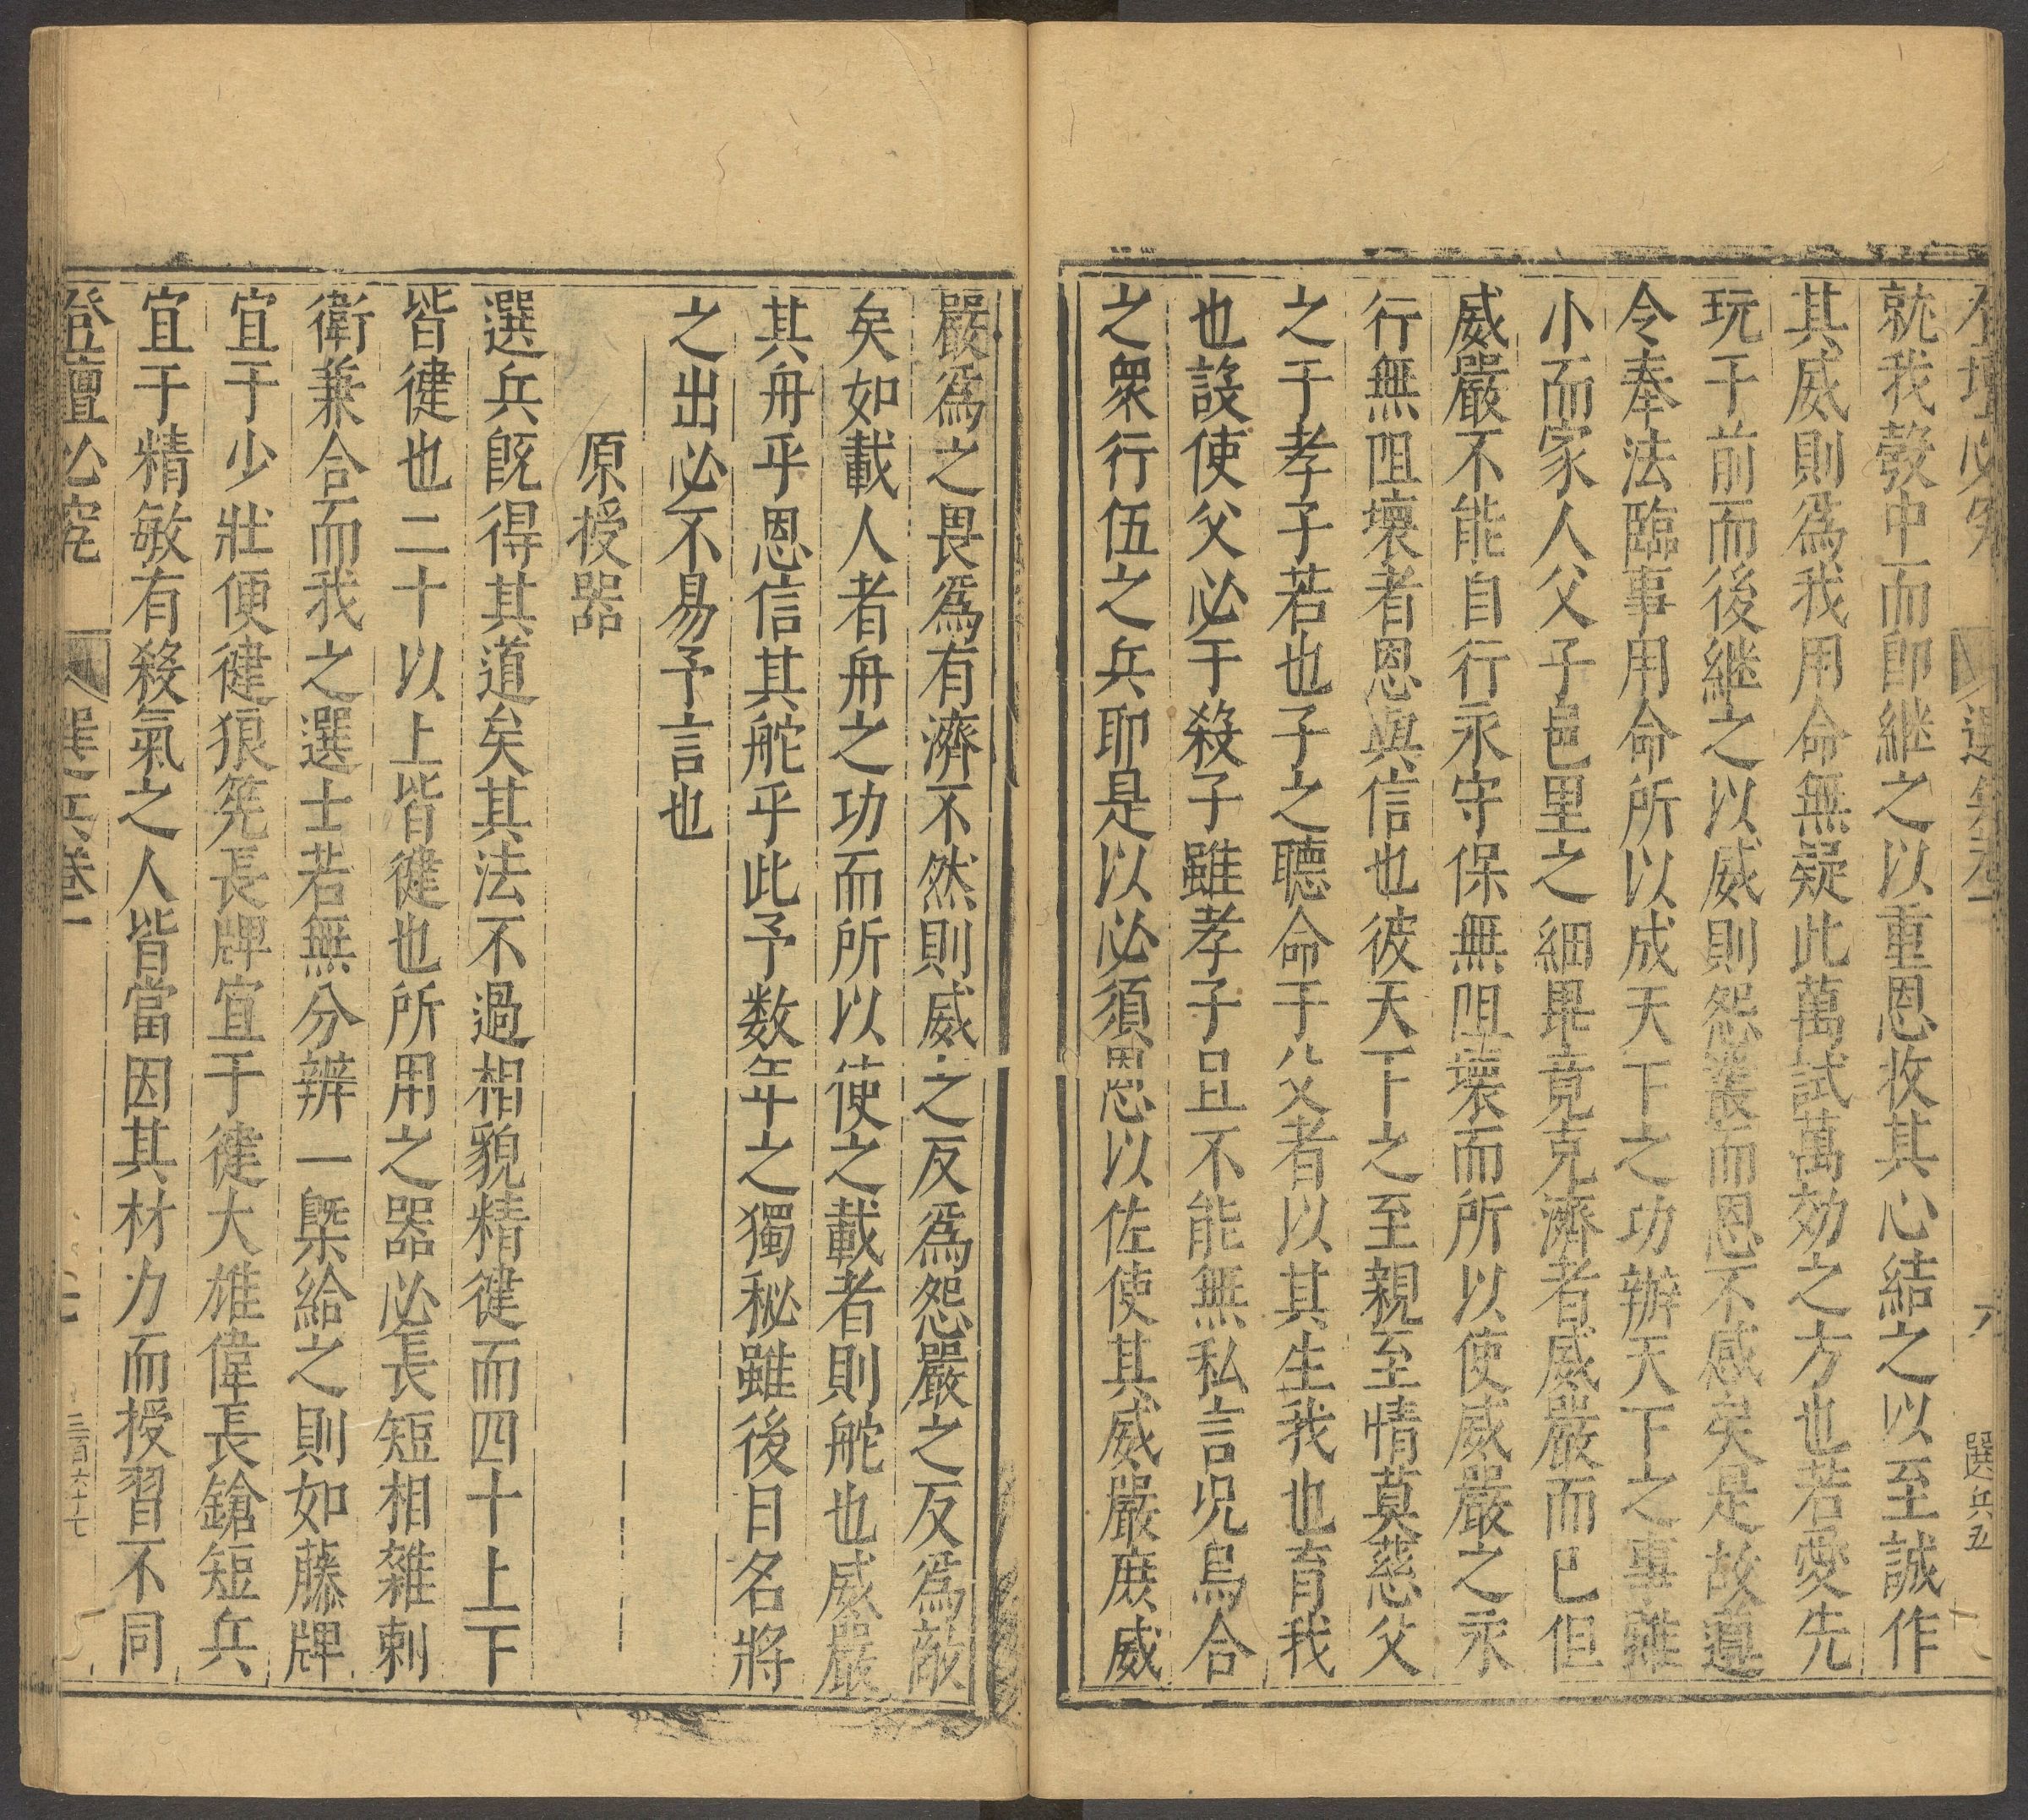 選兵五
就我彀中而卽継之以重恩收其心結之以至誠作
其威則爲我用命無疑此萬試萬効之方也若愛先
玩于前而後継之以威則怨叢而恩不感矣是故道
令奉法臨事用命所以成天下之功辦天下之事雖
小而家人父子邑里之細畢竟克濟者威嚴而已但
威嚴不能自行永守保無阻壞而所以使威嚴之永
行無阻壞者恩與信也彼天下之至親至情莫慈父
之于孝子若也子之聽命于父者以其生我也育我
也設使父必于殺子雖孝子且不能無私言况烏合
之衆行伍之兵耶是以必須恩以佐使其威嚴庻威
嚴爲之畏爲有濟不然則威之反爲怨嚴之反爲敵
矣如載人者舟之功而所以使之載者則舵也威嚴
其舟乎恩信其舵乎此予数年之獨秘雖後日名將
之出必不易予言也
原授器
選兵旣得其道矣其法不過相貌精健而四十上下
皆健也二十以上皆健也所用之器必長短相雜刺
衛兼合而我之選士若無分辨一槩給之則如藤牌
宜于少壯便健狼筅長牌宜于健大雄偉長鎗短兵
宜于精敏有殺氣之人皆當因其材力而授習不同
登壇必究 選兵卷二 三百六十七